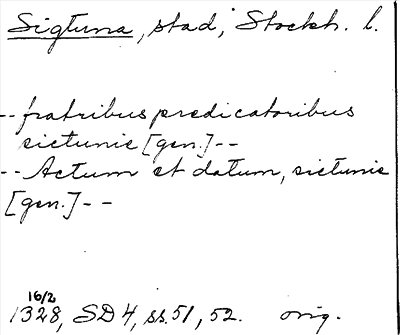 Sigtuna, stad, Stockh. l.
-- fratribus predicatoribus
sictunie [gen.] --
-- Actum et datum, sictunie
[gen.] --
16/2
1328, SD 4, ss. 51, 52. orig.